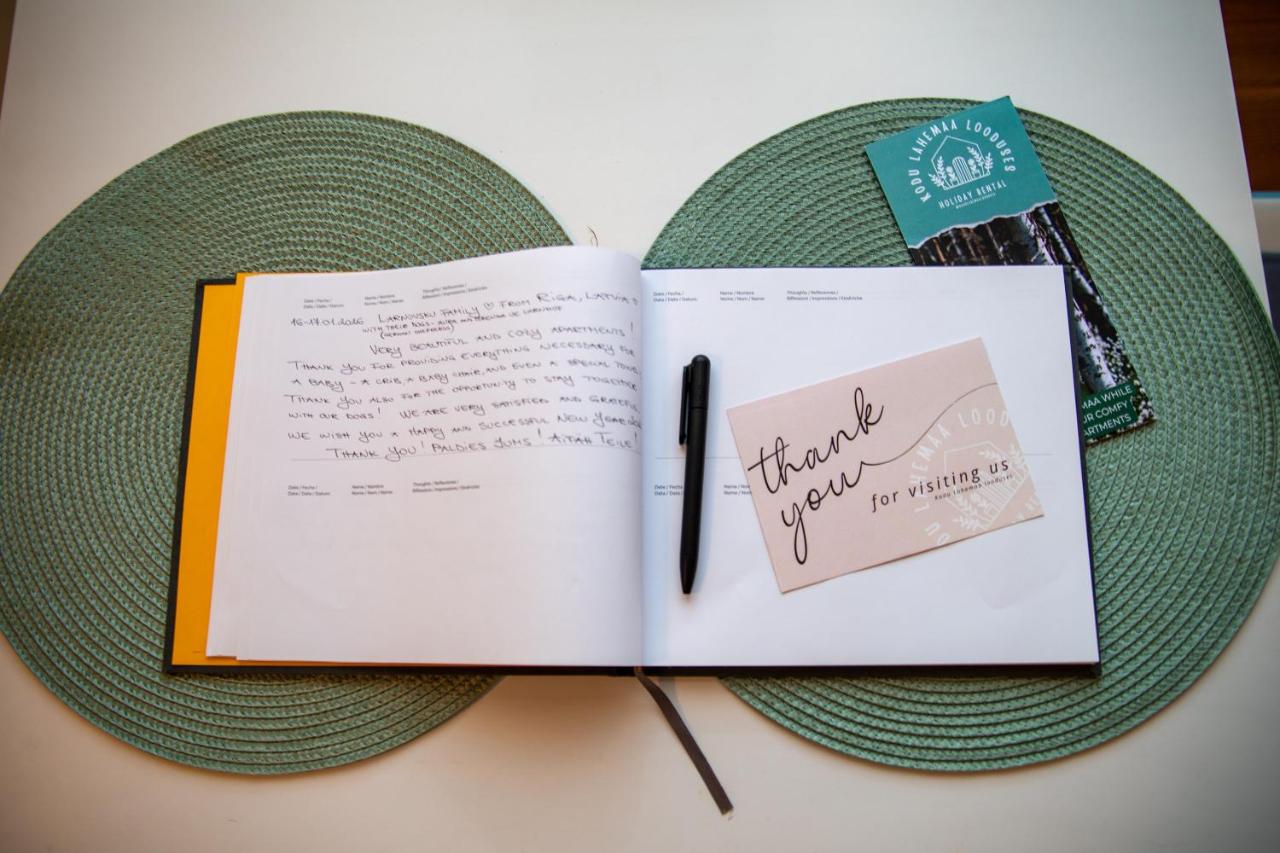 Date / Fecha /
Data / Date / Datum:
Name / Nombre
Nome / Nom / Name:
Thoughts / Reflexiones /
Riflessioni / Impressions / Eindrücke
16-17.01.2026 LARNOVSKU FAMILY ♡ FROM RIGA, LATVIA
WITH THEIR DOGS - AURA AND
VERY BEAUTIFUL AND COZY APARTMENTS!
THANK YOU FOR PROVIDING EVERYTHING NECESSARY FOR
A BABY - A CRIB, A BABY CHAIR, AND EVEN A SPECIAL
THANK YOU ALSO FOR THE OPPORTUNITY TO STAY TOGETHER
WITH OUR DOGS! WE ARE VERY SATISFIED AND GRATEFUL
WE WISH YOU A HAPPY AND SUCCESSFUL NEW YEAR
THANK YOU! PALDIES JUMS! AITÄH TEILE!
Date / Fecha /
Data / Date / Datum:
Name / Nombre
Nome / Nom / Name:
Thoughts / Reflexiones /
Riflessioni / Impressions / Eindrücke
Date / Fecha /
Data / Date / Datum:
Name / Nombre
Nome / Nom / Name:
Thoughts / Reflexiones /
Riflessioni / Impressions / Eindrücke
Date / Fecha
Data / Date /
thank
you
for visiting us
Kodu Lahemaa looduses
KODU LAHEMAA LOODUSES
HOLIDAY RENTAL
MAA WHILE
UR COMFY
ARTMENTS